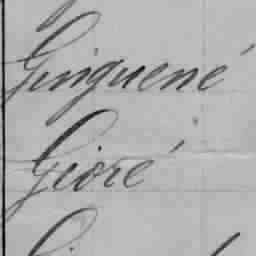 Ginguené
Gioré